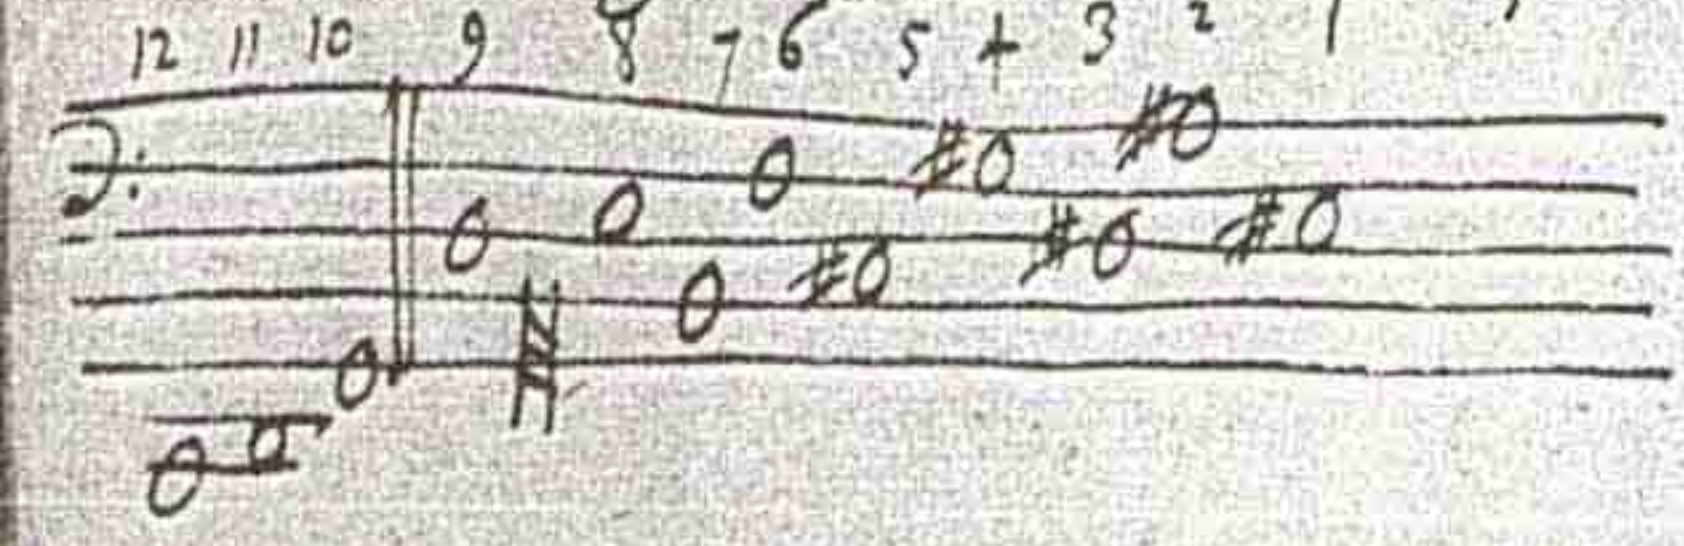 12 11 10 9 8 7 6 5 4 3 2 1